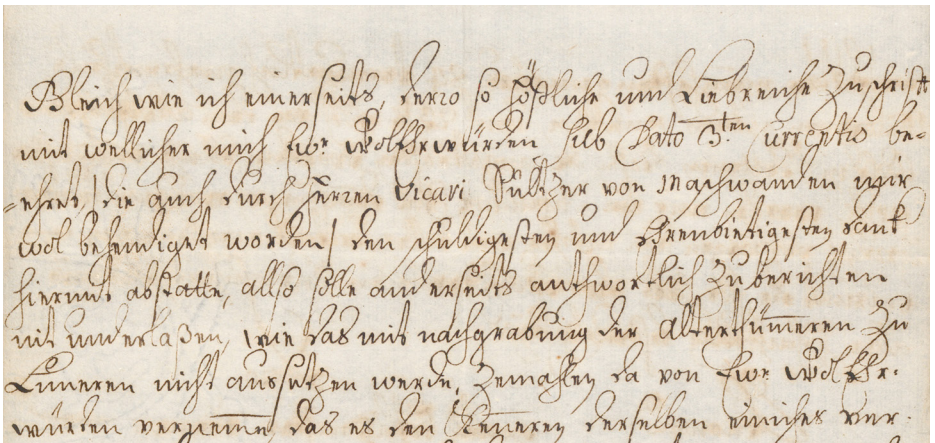 Gleich wie ich einerseits, dero so höfliche und Liebreiche Zuschrifft
mit wellicher mich Ewr WolEhrwürden sub Dato 3.ten Currentis be-
=ehret, / die auch durch Herren Vicari von Maschwanden mir
wol behendiget worden / den schuldigsten und Ehrenbietigsten danck
hiermit abstatte, allso solle anderseits anthwortlich zuberichten
nit underlaßen, wie das mit nachgrabung der Alterthum̅eren zu
Lunneren nicht aussetzen werde, zemahlen da von Ewr WolEhr-
würden vernem̅e, das es den Kenneren derselben einiches ver-